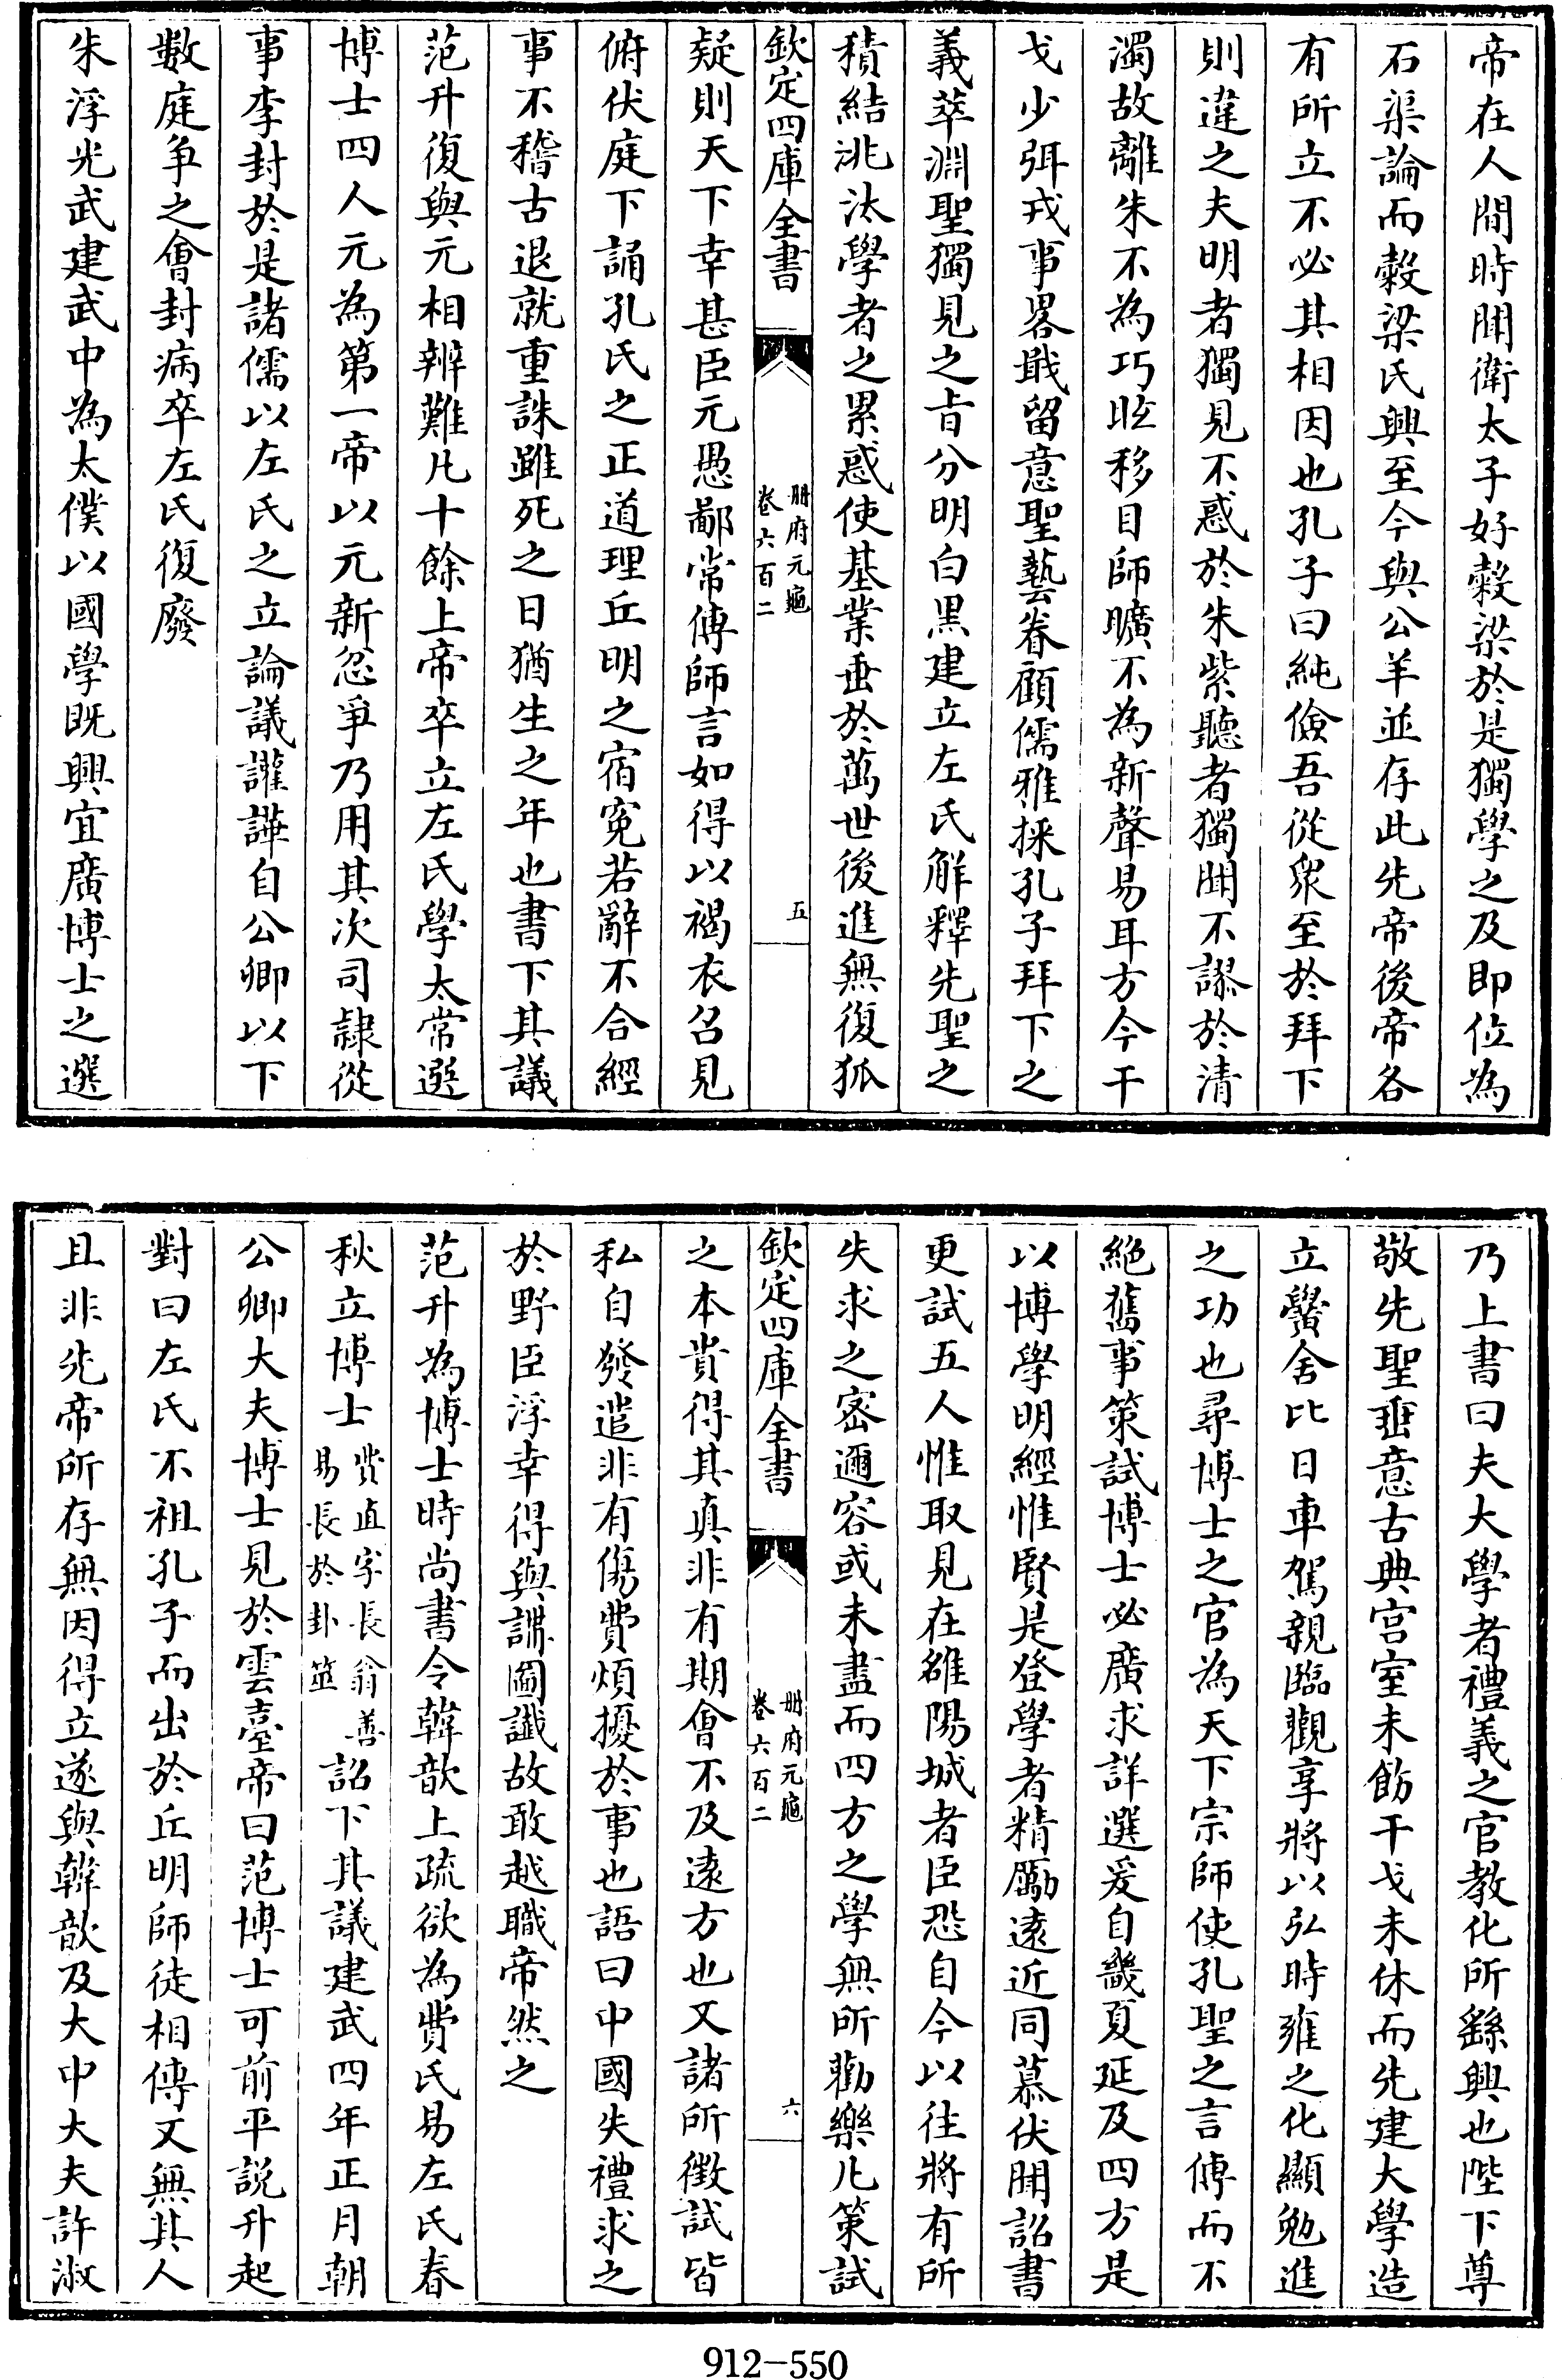 帝在人間時聞衛太子好穀梁於是獨學之及即位為
石渠論而穀梁氏興至今與公羊並存此先帝後帝各
有所立不必其相因也孔子曰純儉吾從衆至於拜下
則違之夫明者獨見不惑於朱紫聽者獨聞不謬於清
濁故離朱不為巧眩移目師曠不為新聲易耳方今干
戈少弭戎事畧戢留意聖藝眷顧儒雅採孔子拜下之
義萃淵聖獨見之旨分明白黑建立左氏解釋先聖之
積結洮汰學者之累惑使基業垂於萬世後進無復狐
欽定四庫全書
冊府元龜
卷六百二
五
疑則天下幸甚臣元愚鄙常傅師言如得以褐衣召見
俯伏庭下誦孔氏之正道理丘明之宿寃若辭不合經
事不稽古退就重誅雖死之日猶生之年也書下其議
范升復與元相辨難凡十餘上帝卒立左氏學太常選
博士四人元為第一帝以元新忿爭乃用其次司隸從
事李封於是諸儒以左氏之立論議讙譁自公卿以下
數庭争之會封病卒左氏復廢
朱浮光武建武中為太僕以國學既興宜廣博士之選
乃上書曰夫大學者禮義之官教化所繇興也陛下尊
敬先聖垂意古典宫室未飭干戈未休而先建大學造
立黌舍比日車駕親臨觀享將以弘時雍之化顯勉進
之功也尋博士之官為天下宗師使孔聖之言傳而不
絶舊事策試博士必廣求詳選爰自畿夏延及四方是
以博學明經惟賢是登學者精勵遠近同慕伏聞詔書
更試五人惟取見在雒陽城者臣恐自今以往將有所
失求之密邇容或未盡而四方之學無所勸樂凡策試
欽定四庫全書
冊府元龜
卷六百二
六
之本貴得其真非有期會不及遠方也又諸所徴試皆
私自發遣非有傷費煩擾於事也語曰中國失禮求之
於野臣浮幸得與講圖讖故敢越職帝然之
范升為博士時尚書令韓歆上疏欲為費氏易左氏春
秋立博士費直字長翁善易長於卦筮詔下其議建武四年正月朝
公卿大夫博士見於雲臺帝曰范博士可前平説升起
對曰左氏不祖孔子而出於丘明師徒相傳又無其人
且非先帝所存無因得立遂與韓歆及大中大夫許淑
912-550